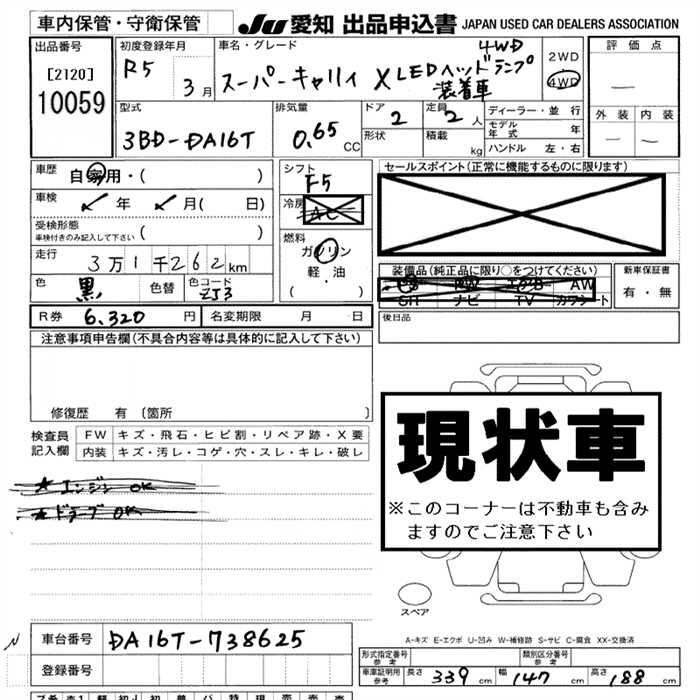 車内保管・守衛保管
JU 愛知 出品申込書 JAPAN USED CAR DEALERS ASSOCIATION
出品番号
[2120]
10059
初度登録年月
R5 3月
車名・グレード
スーパーキャリィ X LEDヘッドランプ装着車
4WD
2WD
4WD
評価点
—
外装 内装
— —
型式
3BD-DA16T
排気量
0.65 CC
ドア 2
形状
定員 2人
積載 kg
ディーラー・並行
モデル年式 年
ハンドル 左・右
車歴
自家用・( )
車検 年 月( 日)
受検形態
車検付きのみ記入して下さい ( )
走行
3万1千262km
色 黒
色替
色コード
ZJ3
シフト
F5
冷房
AC
燃料
ガソリン
軽・油
( )
セールスポイント(正常に機能するものに限ります)
装備品(純正品に限り○をつけてください)
PS PW エアB AW
SR ナビ TV カワシート
新車保証書
有・無
R券 6,320円
名変期限 月 日
後日品
注意事項申告欄(不具合内容等は具体的に記入して下さい)
修復歴 有〔箇所 〕
検査員記入欄
FW キズ・飛石・ヒビ割・リペア跡・X要
内装 キズ・汚レ・コゲ・穴・スレ・キレ・破レ
★エンジン OK
★ドライブ OK
現状車
※このコーナーは不動車も含み
ますのでご注意下さい
スペア
A-キズ E-エクボ U-凹み W-補修跡 S-サビ C-腐食 XX-交換済
N
車台番号 DA16T-738625
登録番号
形式指定番号 参考
類別区分番号 参考
車庫証明用 参考 長さ 339cm 幅 147cm 高さ 188cm